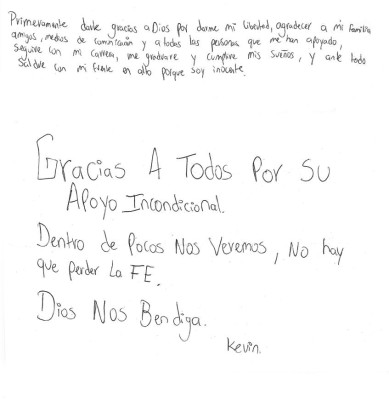 Primeramente darle gracias a Dios por darme mi libertad, agradecer a mi familia
amigos, medios de comunicación y a todas las personas que me han apoyado,
Seguire con mi carrera, me graduare y cumplire mis sueños, y ante todo
Saldre con mi frente en alto porque soy inocente.
Gracias A Todos Por Su
Apoyo Incondicional.
Dentro de Pocos Nos Veremos, No hay
que perder La FE.
Dios Nos Bendiga.
Kevin.